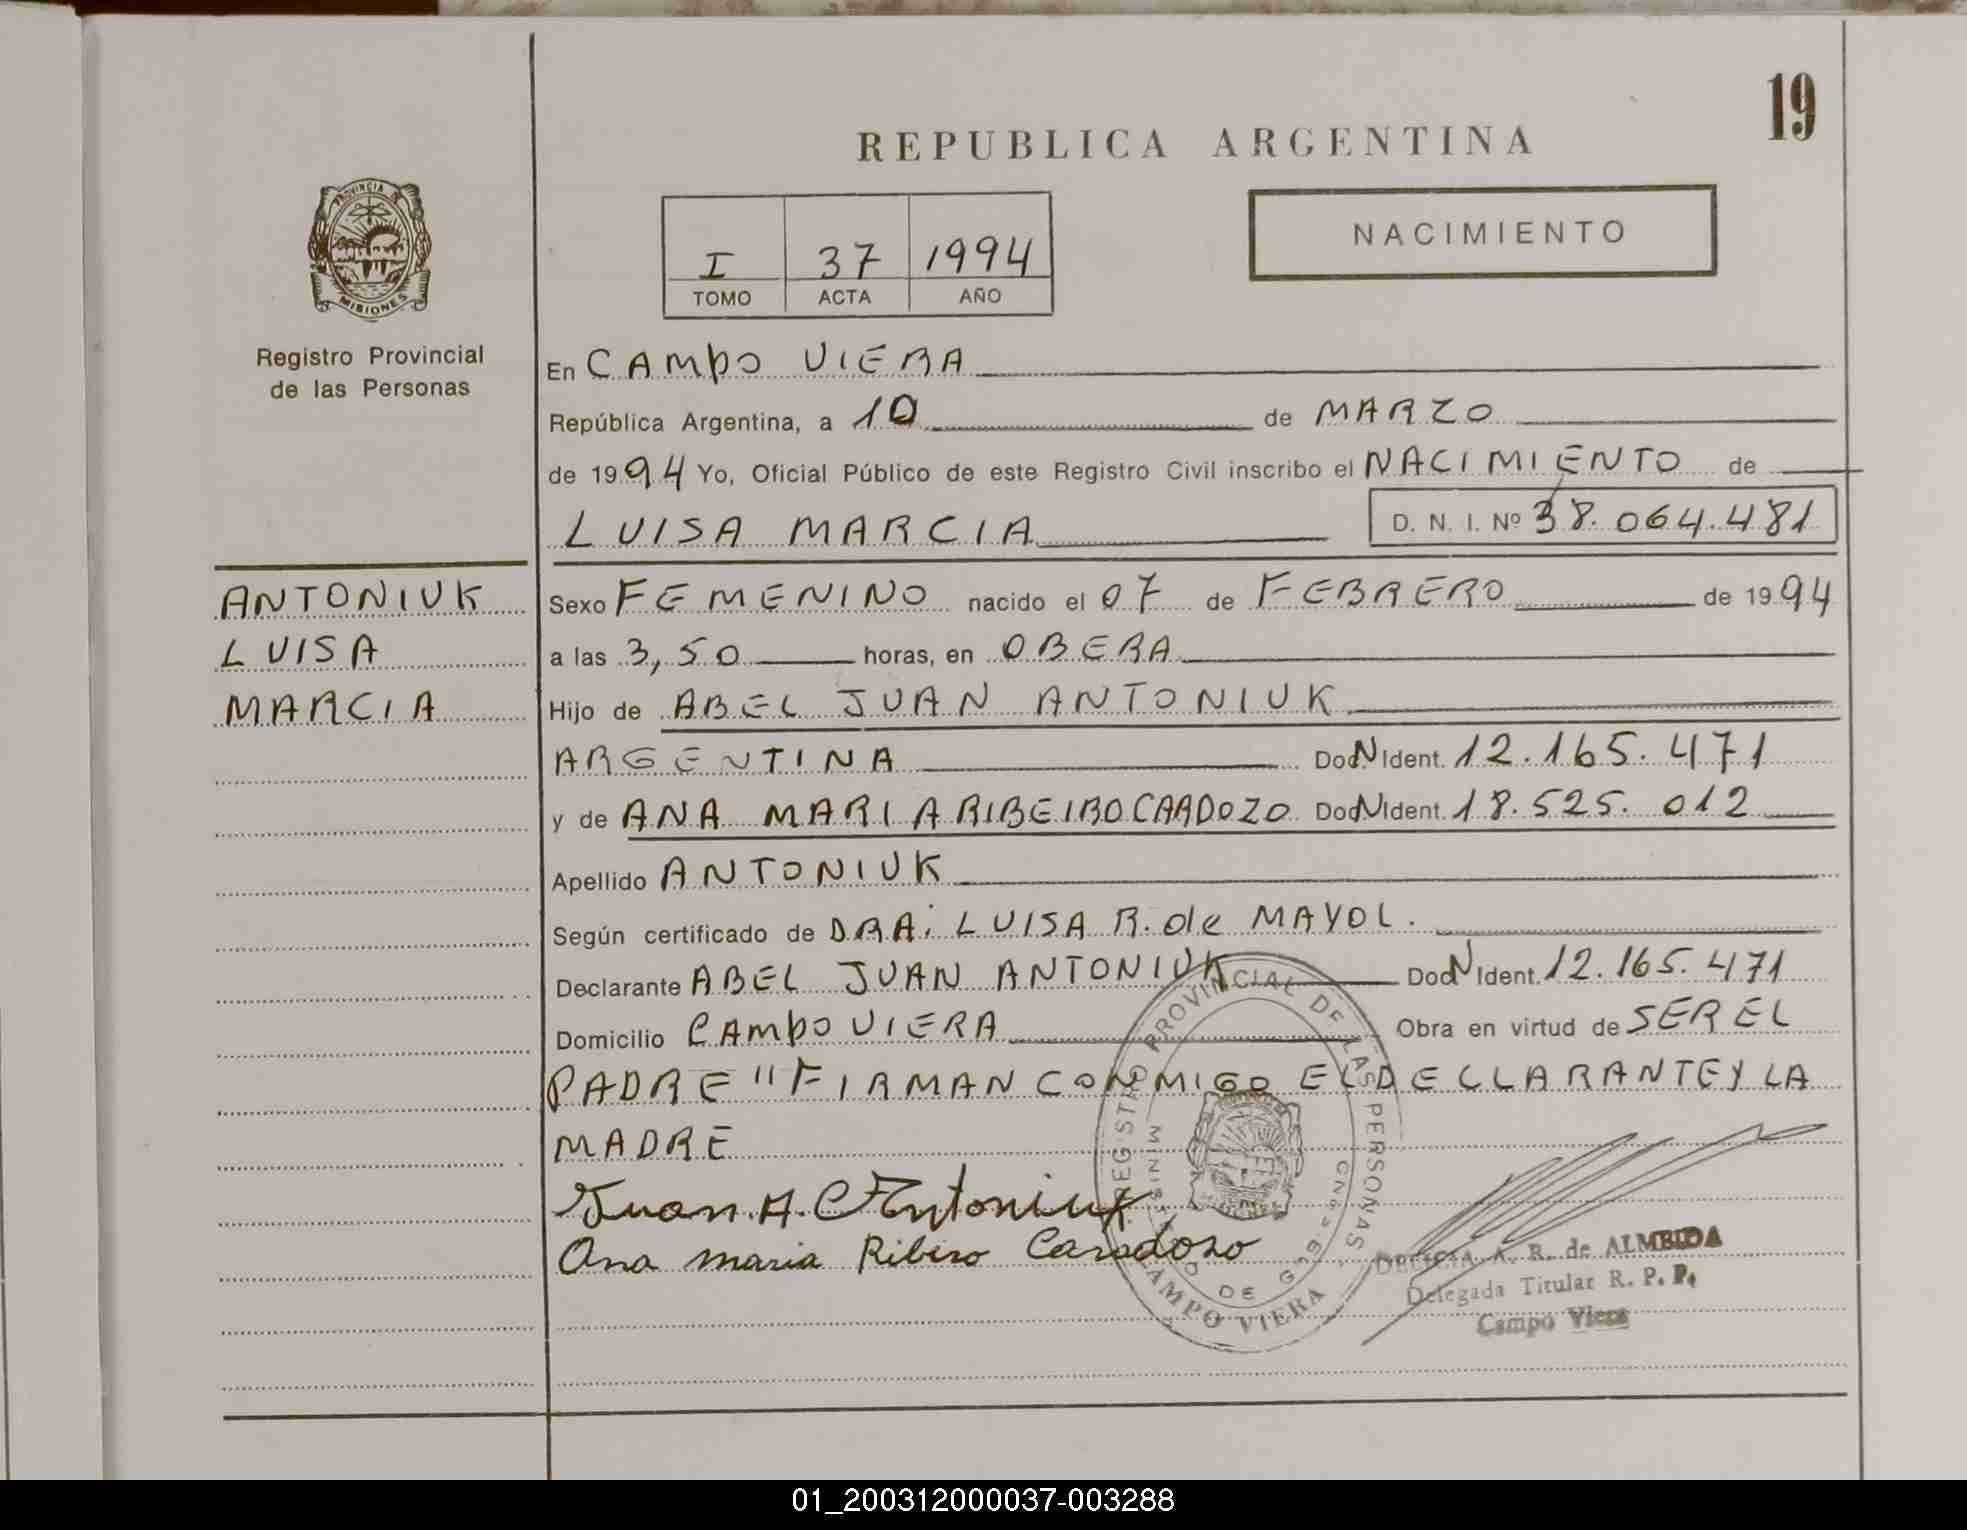 19
REPUBLICA ARGENTINA
PROVINCIA DE
MISIONES
Registro Provincial
de las Personas
I 37 1994
TOMO ACTA AÑO
NACIMIENTO
En CAMPO VIERA
República Argentina, a 10 de MARZO
de 1994 Yo, Oficial Público de este Registro Civil inscribo el NACIMIENTO de
LUISA MARCIA D. N. I. Nº 38.064.481
ANTONIUK
LUISA
MARCIA
Sexo FEMENINO nacido el 07 de FEBRERO de 1994
a las 3,50 horas, en OBERA
Hijo de ABEL JUAN ANTONIUK
ARGENTINA DocN Ident. 12.165.471
y de ANA MARIA RIBEIRO CARDOZO DocN Ident. 18.525.012
Apellido ANTONIUK
Según certificado de DRA: LUISA R. de MAYOL.
Declarante ABEL JUAN ANTONIUK DocN Ident. 12.165.471
Domicilio CAMPO VIERA Obra en virtud de SER EL
PADRE "FIRMAN CONMIGO EL DECLLARANTE Y LA
MADRE
Juan A. Antoniuk
Ana maria Ribero Caradozo
REGISTRO PROVINCIAL DE LAS PERSONAS
CAMPO VIERA
DELICIA A. R. de ALMEIDA
Delegada Titular R. P. P.
Campo Viera
01_200312000037-003288